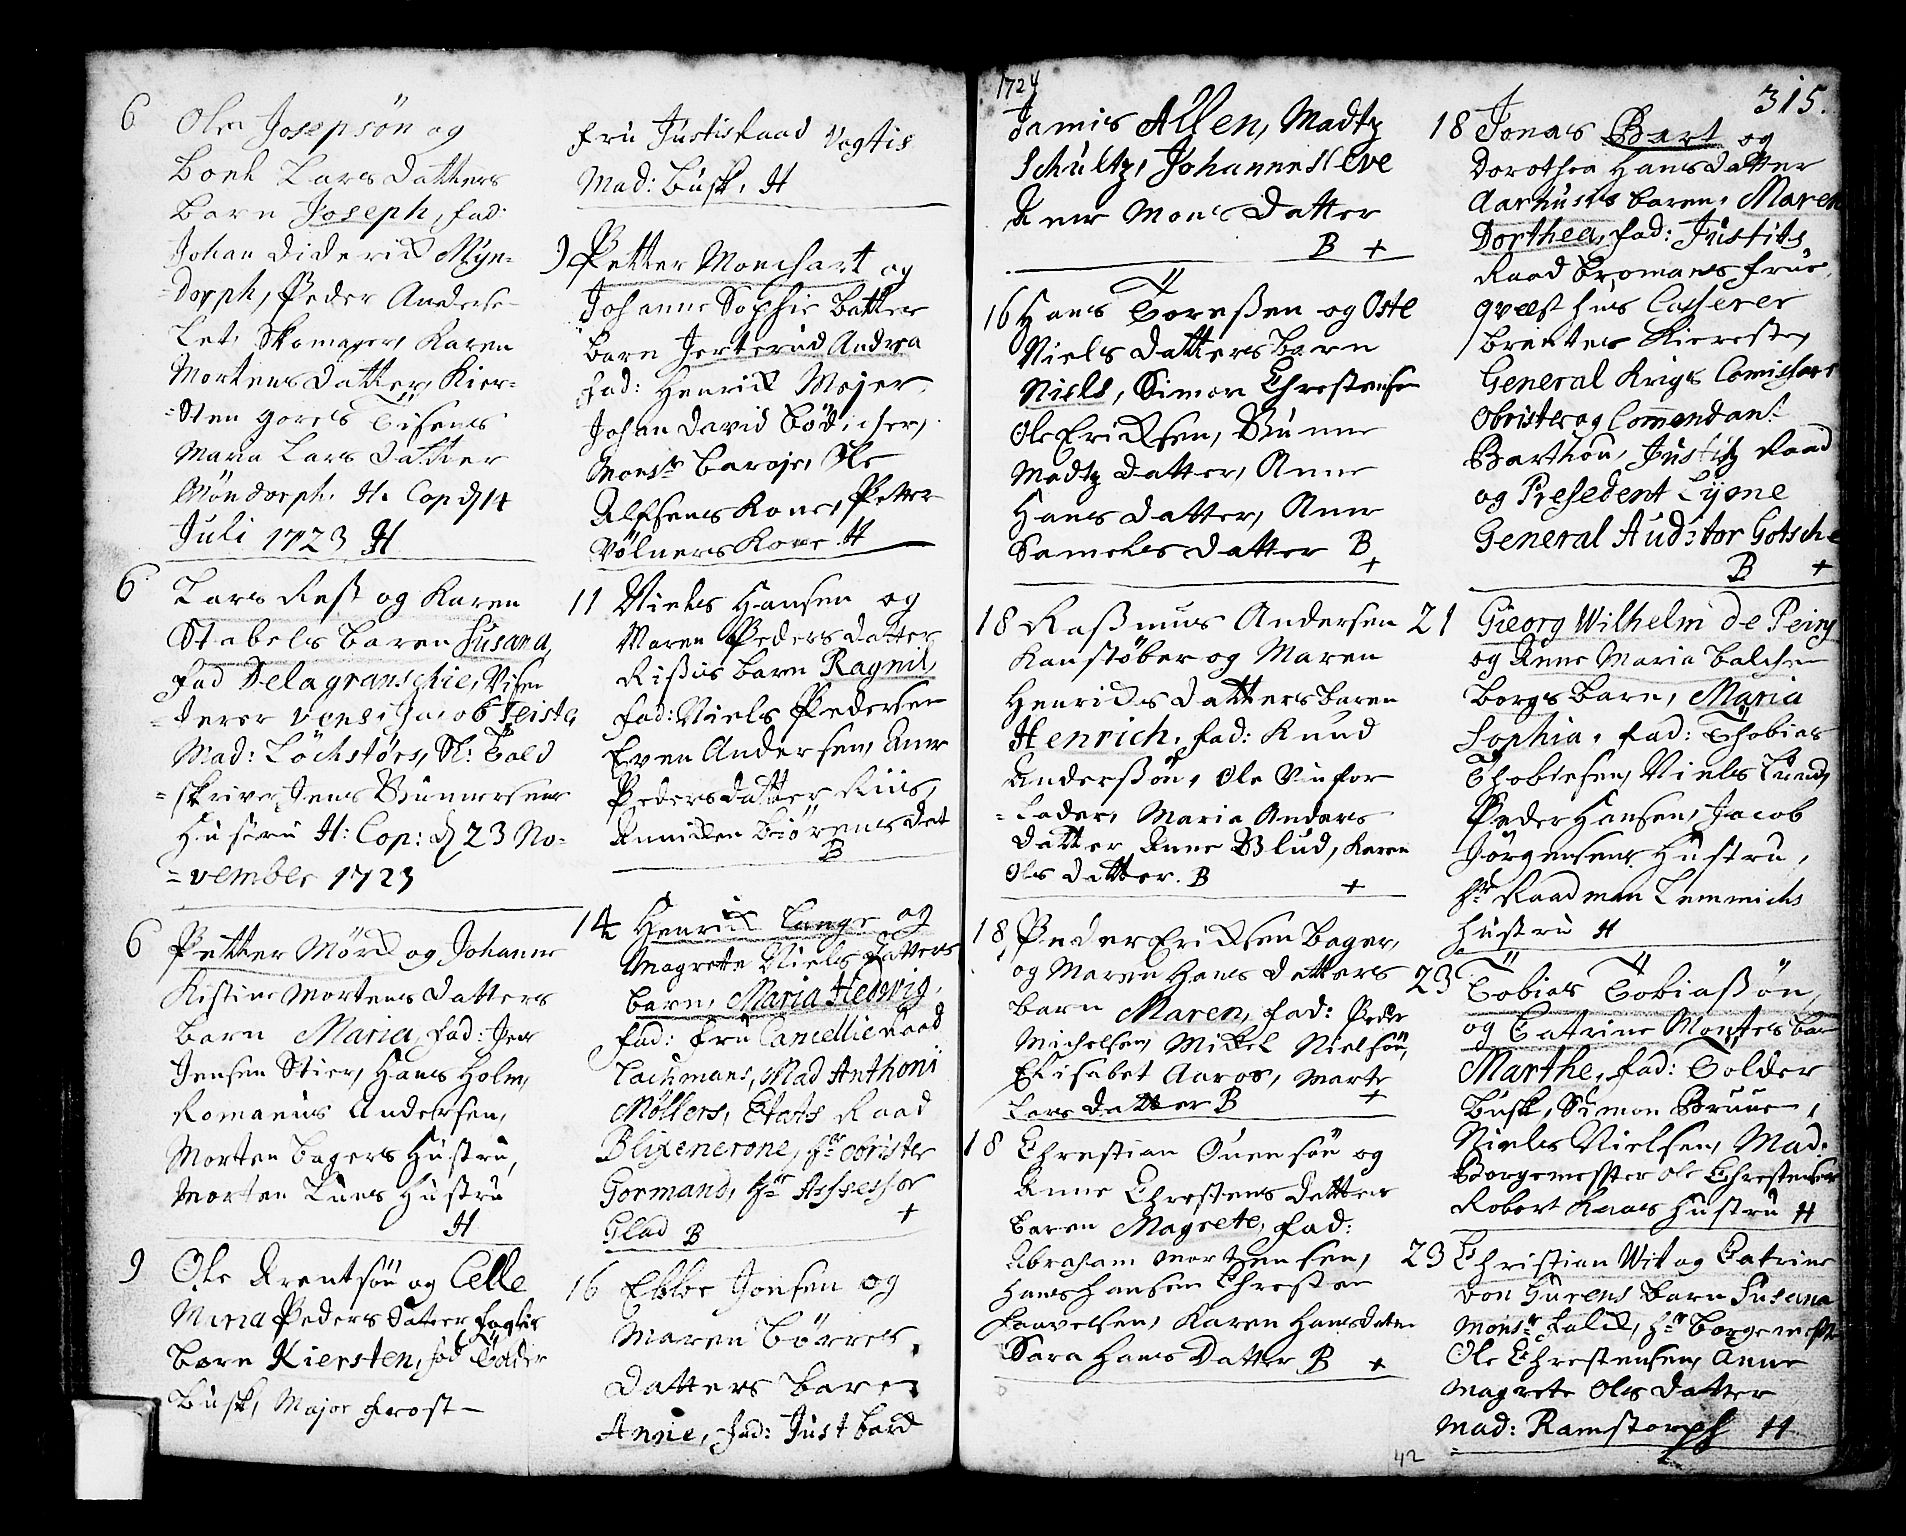 6 Ole Josepsön og
Boel Lars Datters
Barn Joseph, fad:
Johan Diderich Myn-
-dorph, Peder Anderse
Let, Skomager, Karen
Mortens Datter, Kier-
-sten Gorels Tisens
Maria Lars Datter
Möndorph. H. Cop d 14
Juli 1723 H
6 Lars Rest og Karen
Stabels Baren Susana,
Fad Delagranschie, Visen
-terer Jacob Teiste,
Mad: Löchstörs, Sl: Told
-skriver Jens Bunnersens
Hustru H: Cop: d 23 No-
-vember 1723
6 Petter Mörch og Johanne
Kistine Mortens Datters
Barn Maria, fad: Jens
Jensen Stier, Hans Holm,
Romanus Andersen,
Morten Bagers Hustru,
Morten Lunes Hustru
H
9 Ole Arentsön og Celle
Maria Peders Datter
Barn Kiersten, fad Tolder
Busk, Major Frost
Fru Justisraad Vogtis
Mad: Busk. H
9 Petter Monchart og
Johanne Sophie Batter
Barn Jerterud Andrea
Fad: Henrich Mejer,
Johan David Bödicher,
Monsr Baroje, Ole
Alfsens Kone, Petter
Völners Kone H
11 Niels Hansen og
Maren Peders Datter
Riisius Barn Ragnil,
Fad: Niels Pedersen
Even Andersen, Anne
Peders Datter Riis,
Anniken Biörens Dat
B
14 Henrich Lange og
Magrete Niels Datters
Barn, Maria Hedvig,
Fad: Fru Cancellieraad
Lachmans, Mad Anthoni
Möllers, Etats Raad
Blixenerone, Hr Obrister
Gormand, Hr Assessor
Glad B +
16 Ebbe Jonsen og
Maren Börres
Datters Barn
Anne, Fad: Just Bard
1724
315.
Jamis Allen, Madtz
Schultz, Johannes Leve
Anne Mons Datter
B +
16 Hans Toreßen og Oste
Niels Datters Barn
Niels, Simon Christensen
Ole Erichsen, Gunne
Madtz Datter, Anne
Hans Datter, Anne
Samuels Datter B
+
18 Raßmus Andersen
Kanstöber og Maren
Henrichs Datters Baren
Henrich, fad: Knud
Anderssön, Ole Vinfor
-lader, Maria Anders
Datter Anne Blud, Karen
Ols Datter. B +
18 Peder Erichsen Bager,
og Maren Hans Datters
Barn Maren, fad: Peder
Michelsen, Mickel Nielsön,
Elisabet Aaros, Marte
Lars Datter B +
18 Christian Svensön og
Anne Christens Datter
Baren Magrete, fad:
Abraham Mortzensen,
Hans Hansen Christen
Paavelsen, Karen Hansdatter
Sara Hans Datter B +
18 Jonas Bart og
Dorothea Hans Datter
Aarhuses Baren, Maren
Dorthea, fad: Justits
Raad Bromans Frue,
Casserer
Brentes Kiereste,
General Krigs Comissari
Obrister og Commendant
Barthon, Justitz Raad
og Presedent Lyone
General Auditor Gotsche
B +
21 Gieorg Wilhelm de Peiny
og Anne Maria Balchen
Borgs Barn, Maria
Sophia, fad: Thobias
Thobiesen, Niels Lund,
Peder Hansen, Jacob
Jörgensens Hustru,
Hr Raadman Lemmichs
Hustru H
23 Tobias Tobiassön,
og Catrine Montes Barn
Marthe, fad: Tolder
Busk, Simon Bruun,
Niels Nielsen, Mad:
Borgemester Ole Christensen
Robert Kaas Hustru H
23 Christian Wit og Catrine
von Gurens Barn Susana
Monsr Falch, Hr Borgemester
Ole Christensen, Anne
Magrete Ols Datter
Mad: Ramstorph H
42